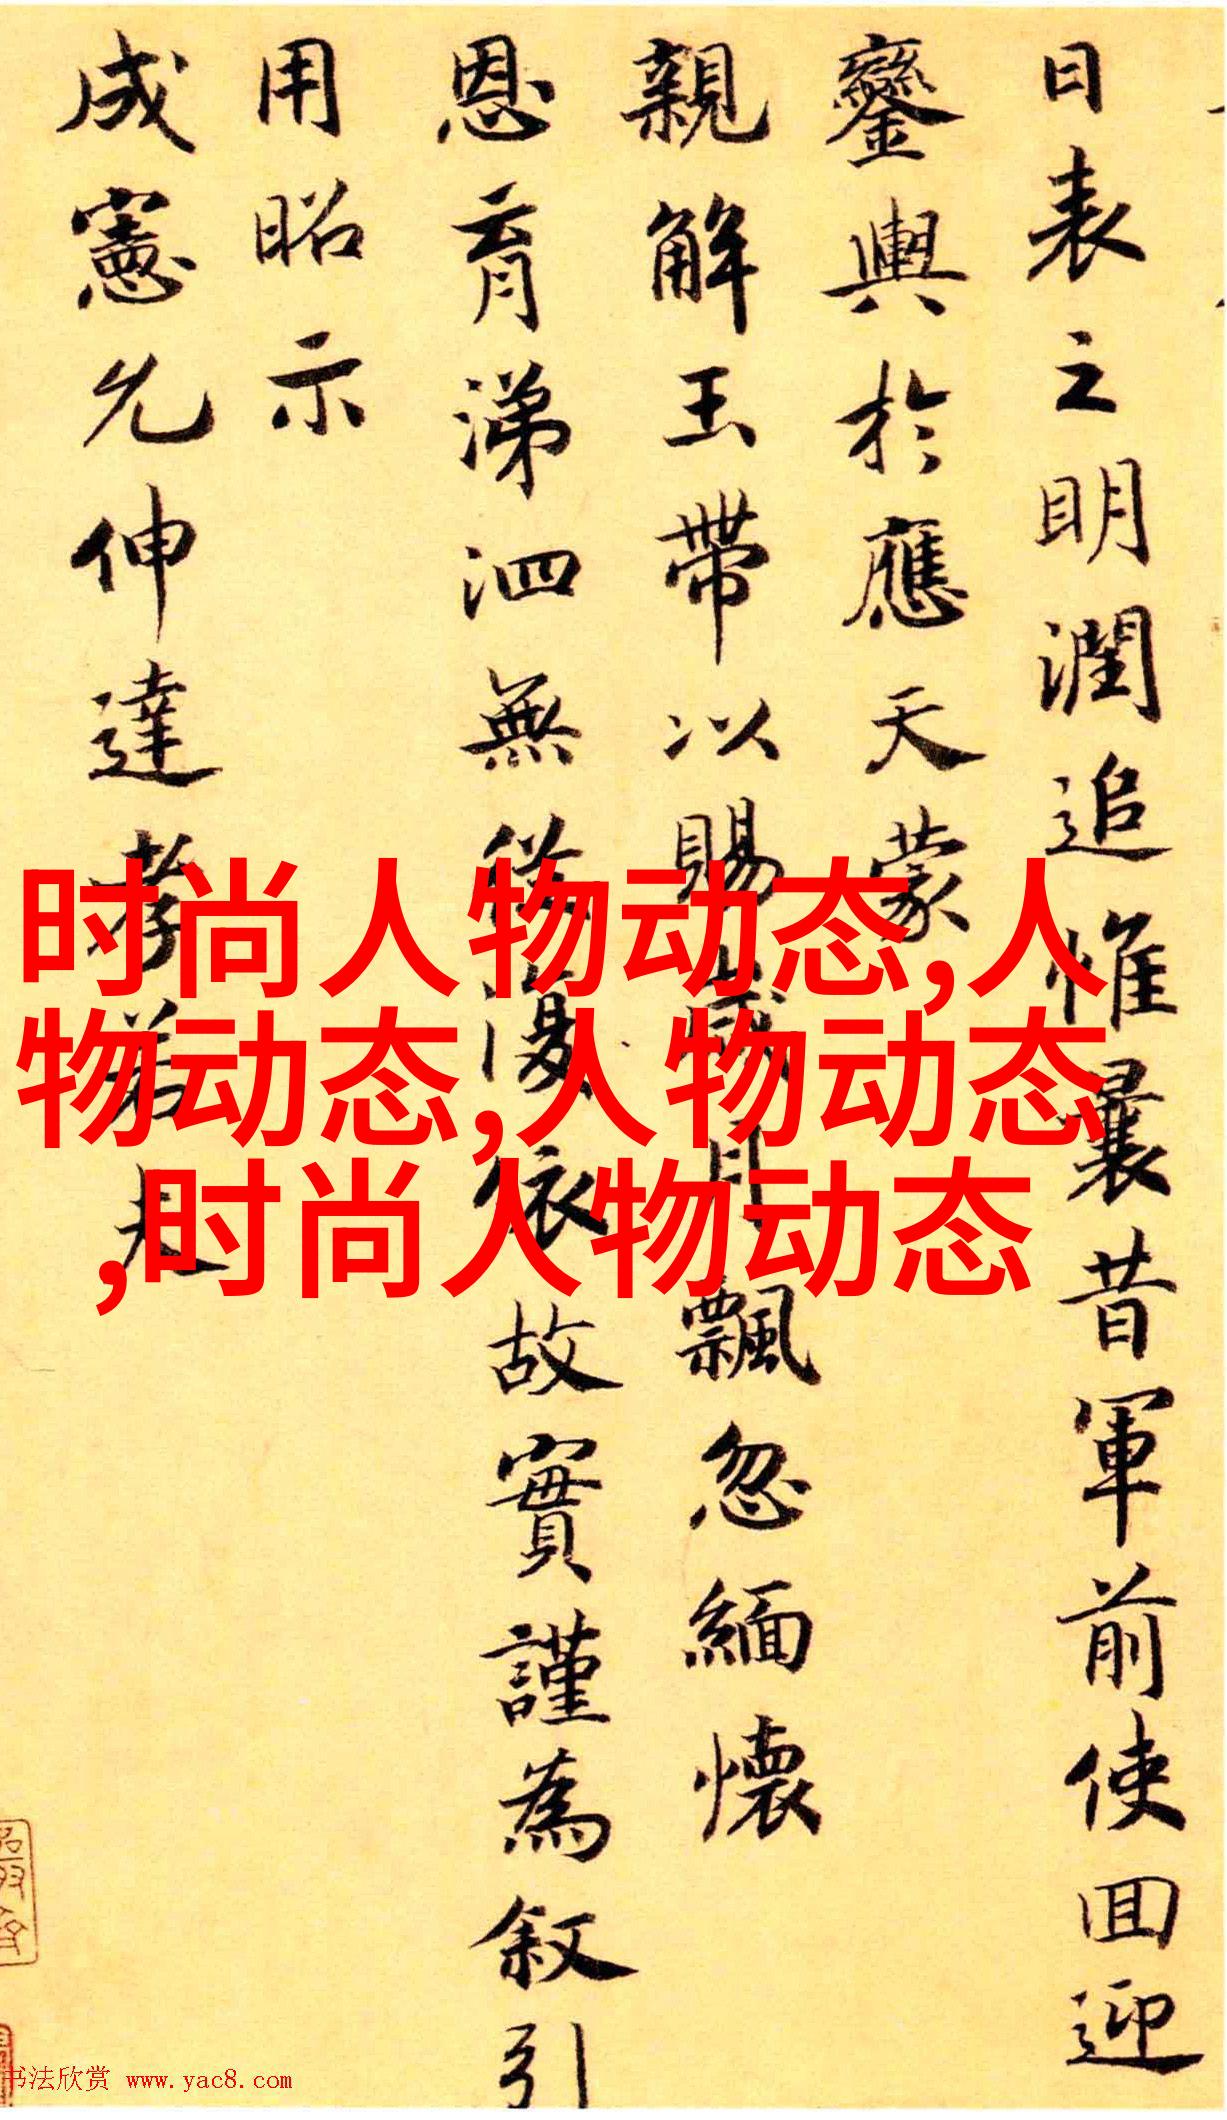 日表之明潤追惟曩昔軍前使回迎
鑾輿於應天蒙
親解玉帶以賜歲月飄忽緬懷
恩育涕泗無從復依故實謹為叙引
用昭示
成憲允伸達孝若夫
时尚人物动态,人
物动态,人物动态
,时尚人物动态
书法欣赏 www.yac8.com